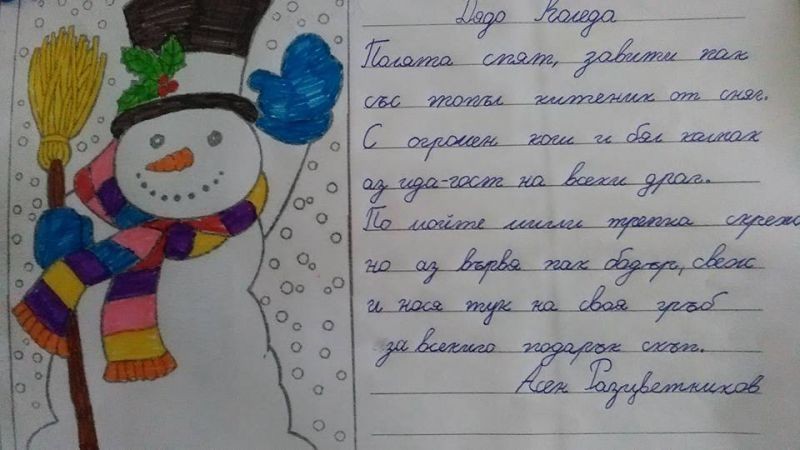 Дядо Коледа
Полята спят, завити пак
със топъл китеник от сняг.
С огромен кош и бял калпак
аз ида-гост на всеки драг.
По мойте мигли трепка скреж
но аз вървя пак бодър, свеж
и нося тук на своя гръб
за всекиго подарък скъп.
Асен Разцветников